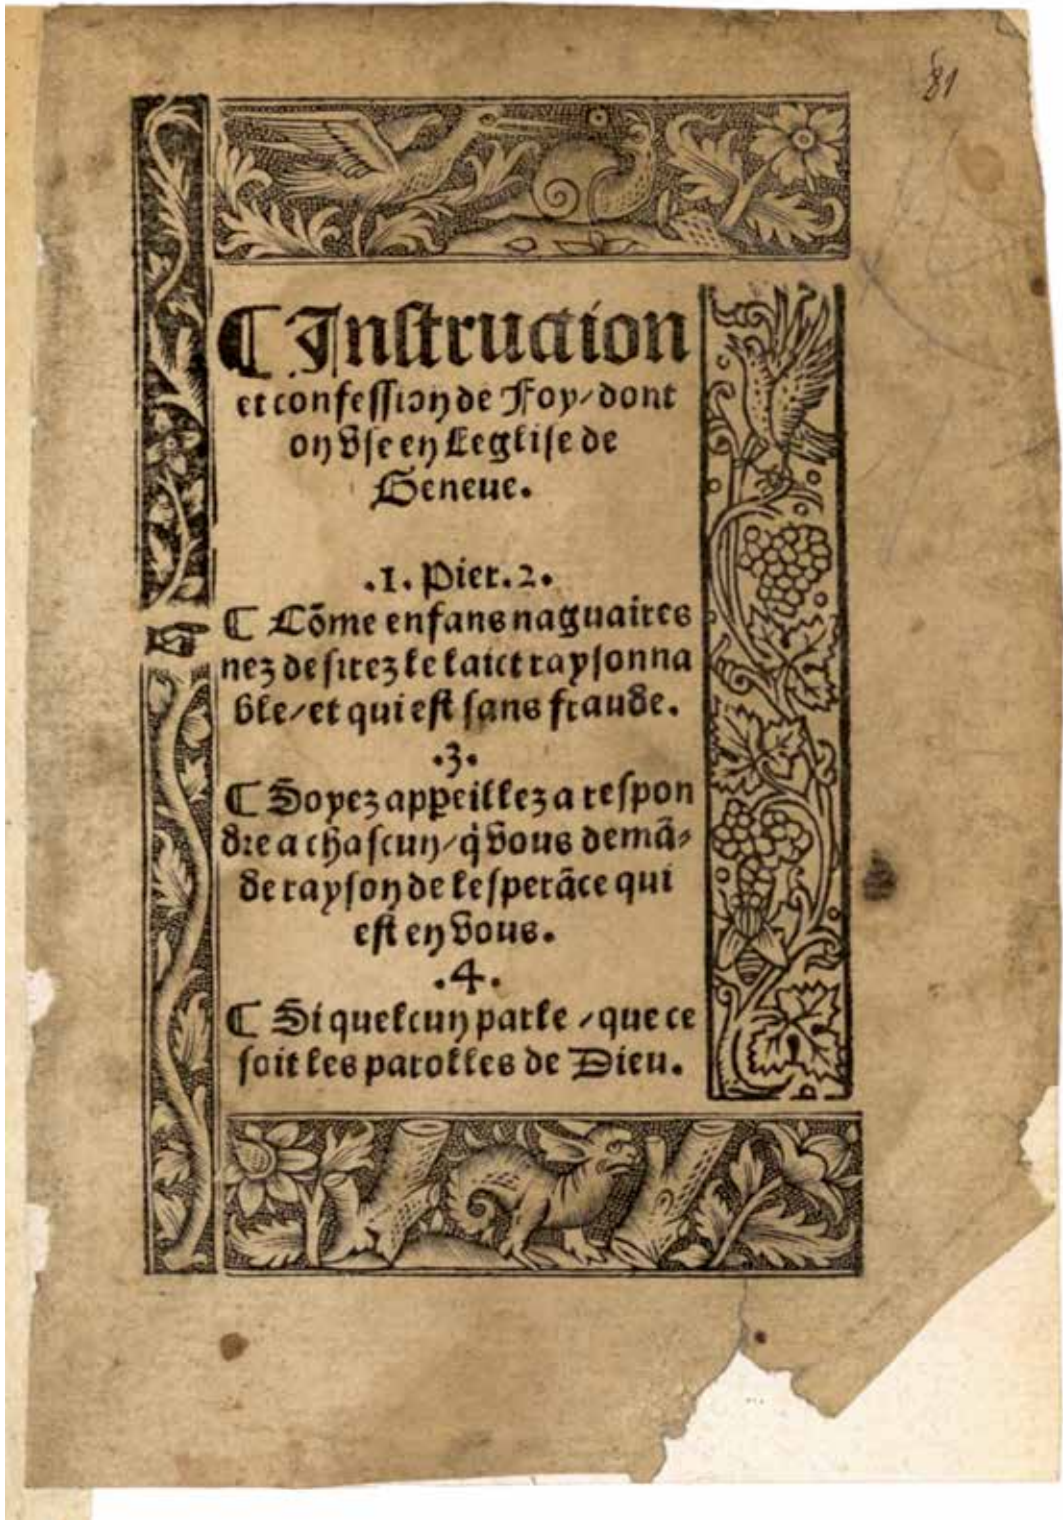 81
⁋ Instruction
et confession de Foy/ dont
on vse en Leglise de
Geneue.
.1. Pier. 2.
⁋ Cõme enfans naguaires
nez desirez le laict raysonna
ble/ et qui est sans fraude.
.3.
⁋ Soyez appeillez a respon
dre a chascun/ q̇ vous demã⸗
de rayson de lesperãce qui
est en vous.
.4.
⁋ Si quelcun parle / que ce
soit les parolles de Dieu.